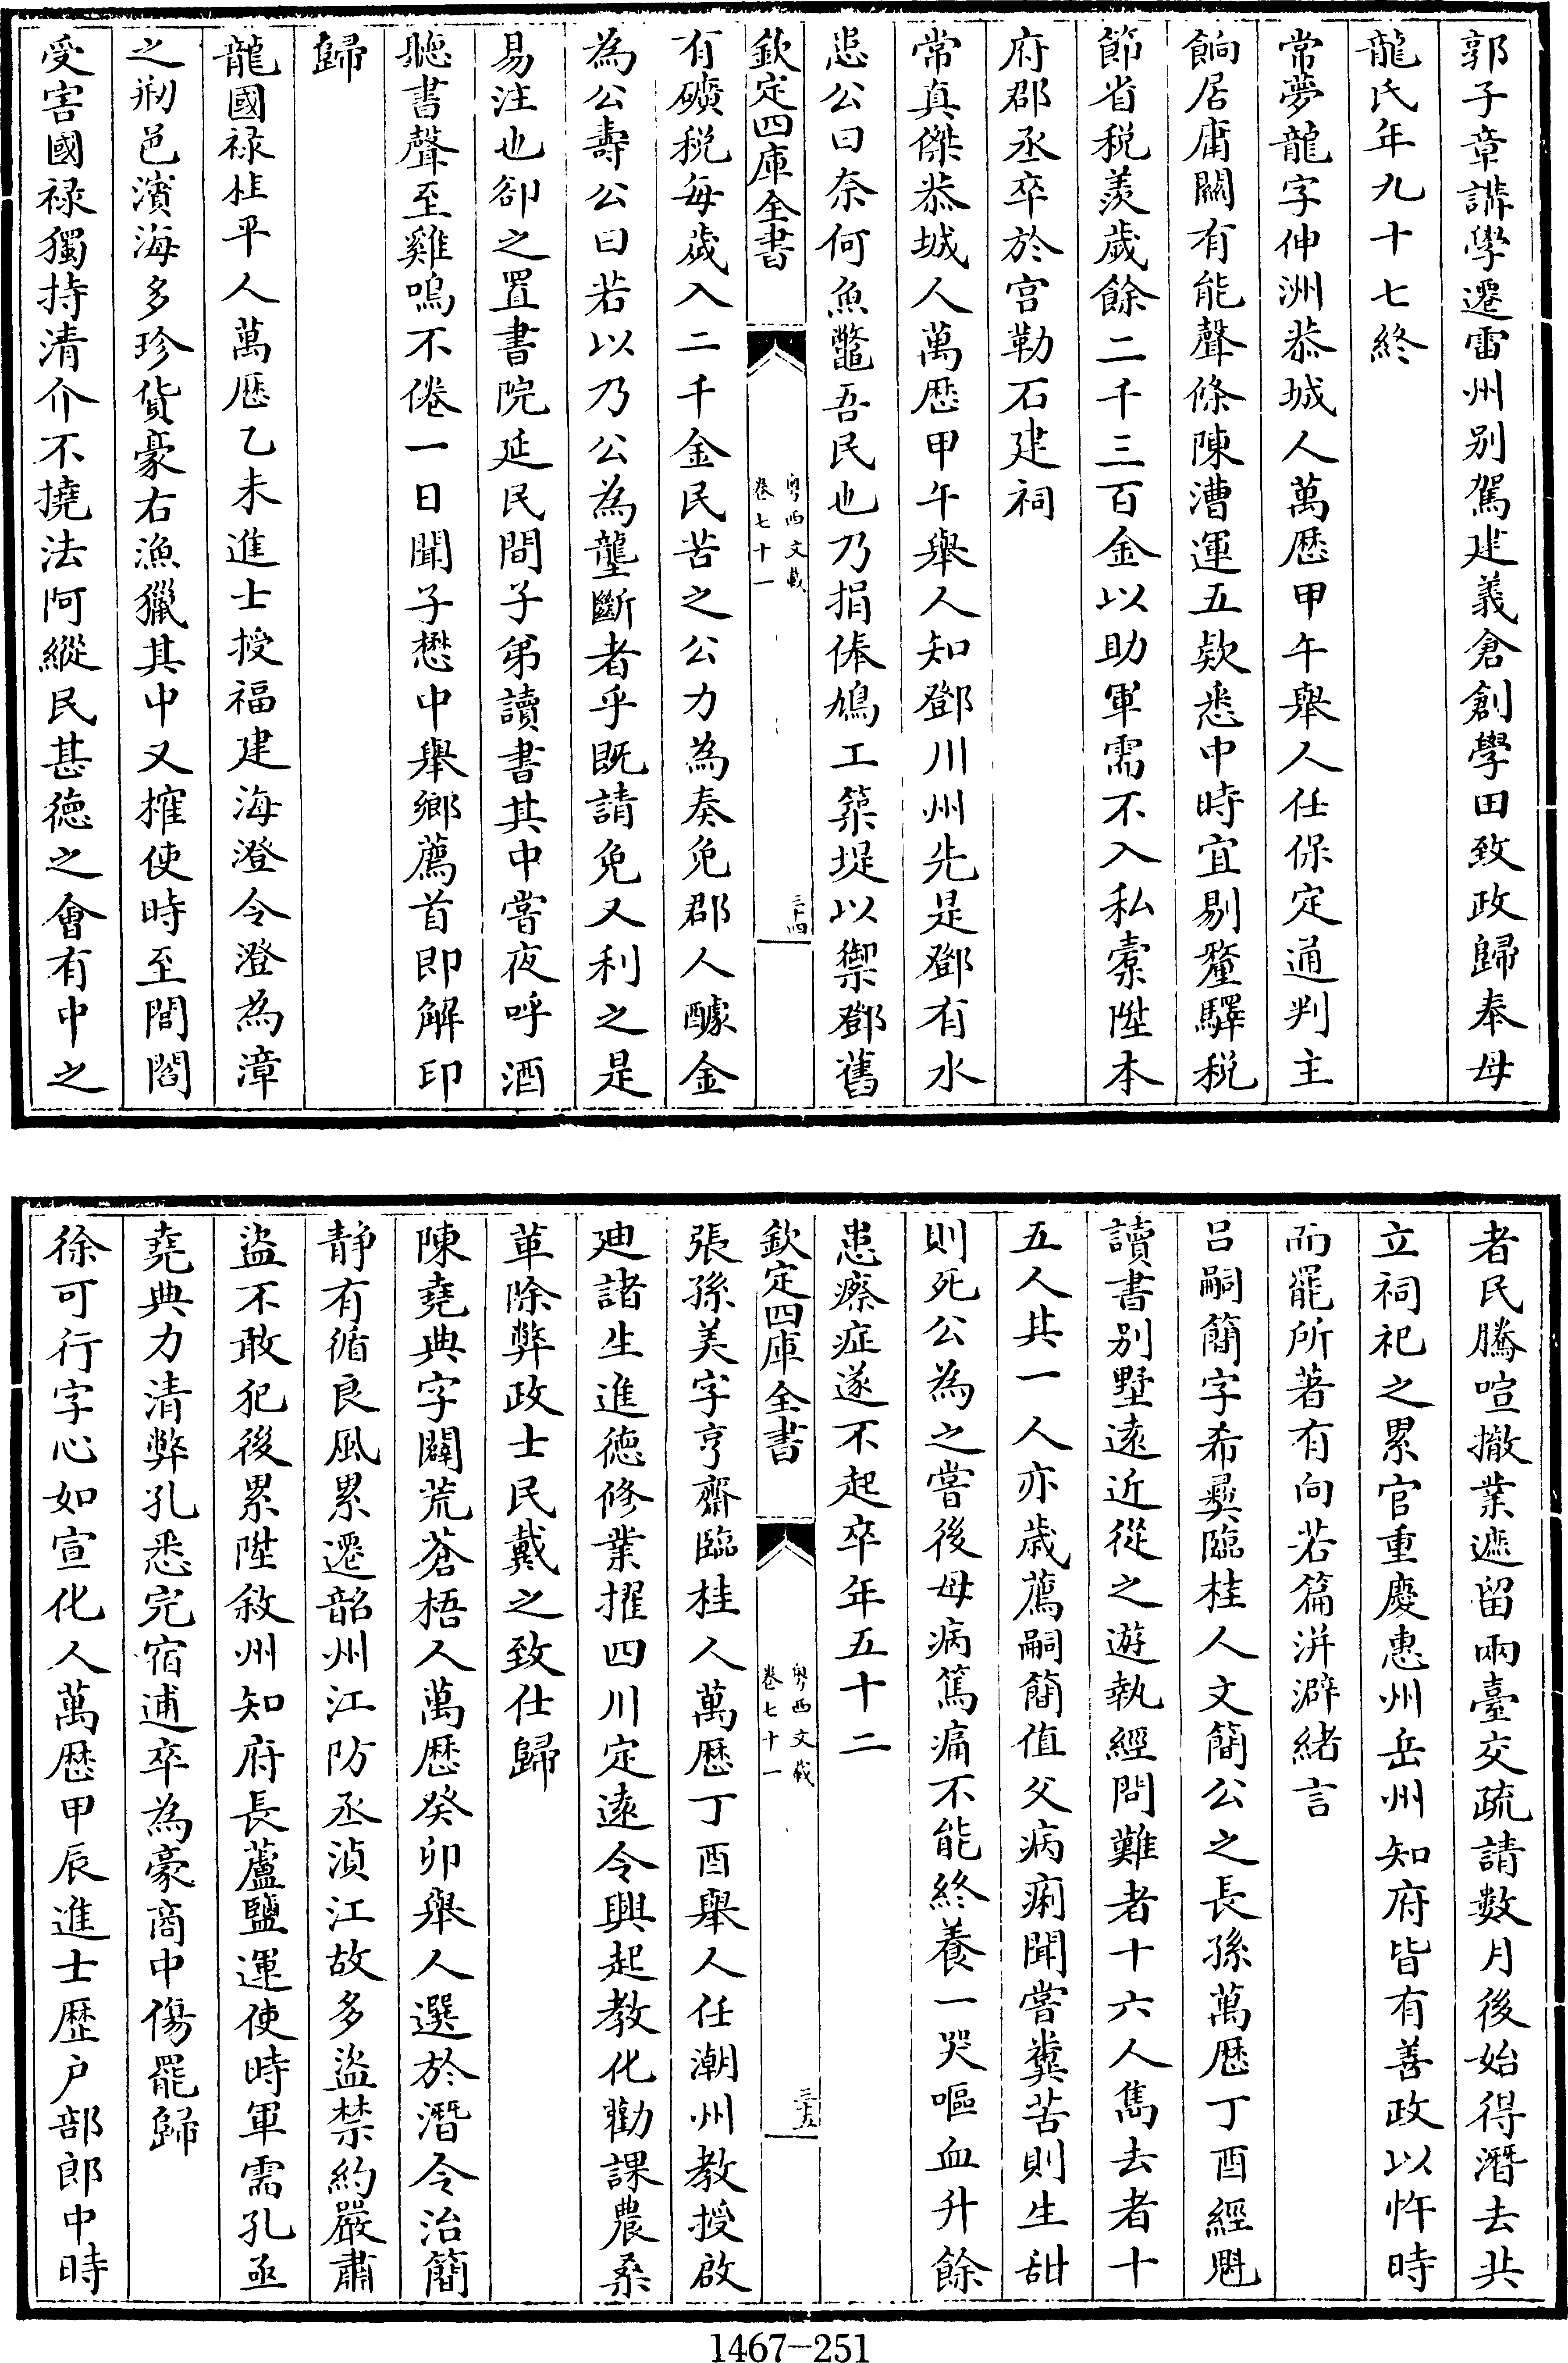 郭子章講學遷雷州别駕建義倉創學田致政歸奉母
龍氏年九十七終
常夢龍字伸洲恭城人萬厯甲午舉人任保定通判主
餉居庸關有能聲條陳漕運五欵悉中時宜剔釐驛税
節省税羨歲餘二千三百金以助軍需不入私橐陞本
府郡丞卒於官勒石建祠
常真傑恭城人萬厯甲午舉人知鄧川州先是鄧有水
患公曰奈何魚鼈吾民也乃捐俸鳩工築堤以禦鄧舊
欽定四庫全書
粤西文載
卷七十一
三十四
有礦税每歲入二千金民苦之公力為奏免郡人醵金
為公壽公曰若以乃公為壟斷者乎既請免又利之是
易注也卻之置書院延民間子弟讀書其中嘗夜呼酒
聽書聲至雞鳴不倦一日聞子懋中舉鄉薦首即解印
歸
龍國禄桂平人萬厯乙未進士授福建海澄令澄為漳
之劇邑濱海多珍貨豪右漁獵其中又搉使時至閭閻
受害國禄獨持清介不撓法阿縱民甚德之會有中之
者民騰喧撤業遮留兩臺交疏請數月後始得潛去共
立祠祀之累官重慶惠州岳州知府皆有善政以忤時
而罷所著有向若篇洴澼緒言
吕嗣簡字希彛臨桂人文簡公之長孫萬厯丁酉經魁
讀書别墅遠近從之遊執經問難者十六人雋去者十
五人其一人亦歳薦嗣簡值父病痢聞嘗糞苦則生甜
則死公為之嘗後母病篤痛不能終養一哭嘔血升餘
患瘵症遂不起卒年五十二
欽定四庫全書
粤西文載
卷七十一
三十五
張孫美字亨齋臨桂人萬厯丁酉舉人任潮州教授啟
廸諸生進德修業擢四川定遠令興起教化勸課農桑
革除弊政士民戴之致仕歸
陳堯典字闢荒蒼梧人萬厯癸卯舉人選於潛令治簡
静有循良風累遷韶州江防丞湞江故多盜禁約嚴肅
盜不敢犯後累陞敘州知府長蘆鹽運使時軍需孔亟
堯典力清弊孔悉完宿逋卒為豪商中傷罷歸
徐可行字心如宣化人萬厯甲辰進士歴户部郎中時
1467-251